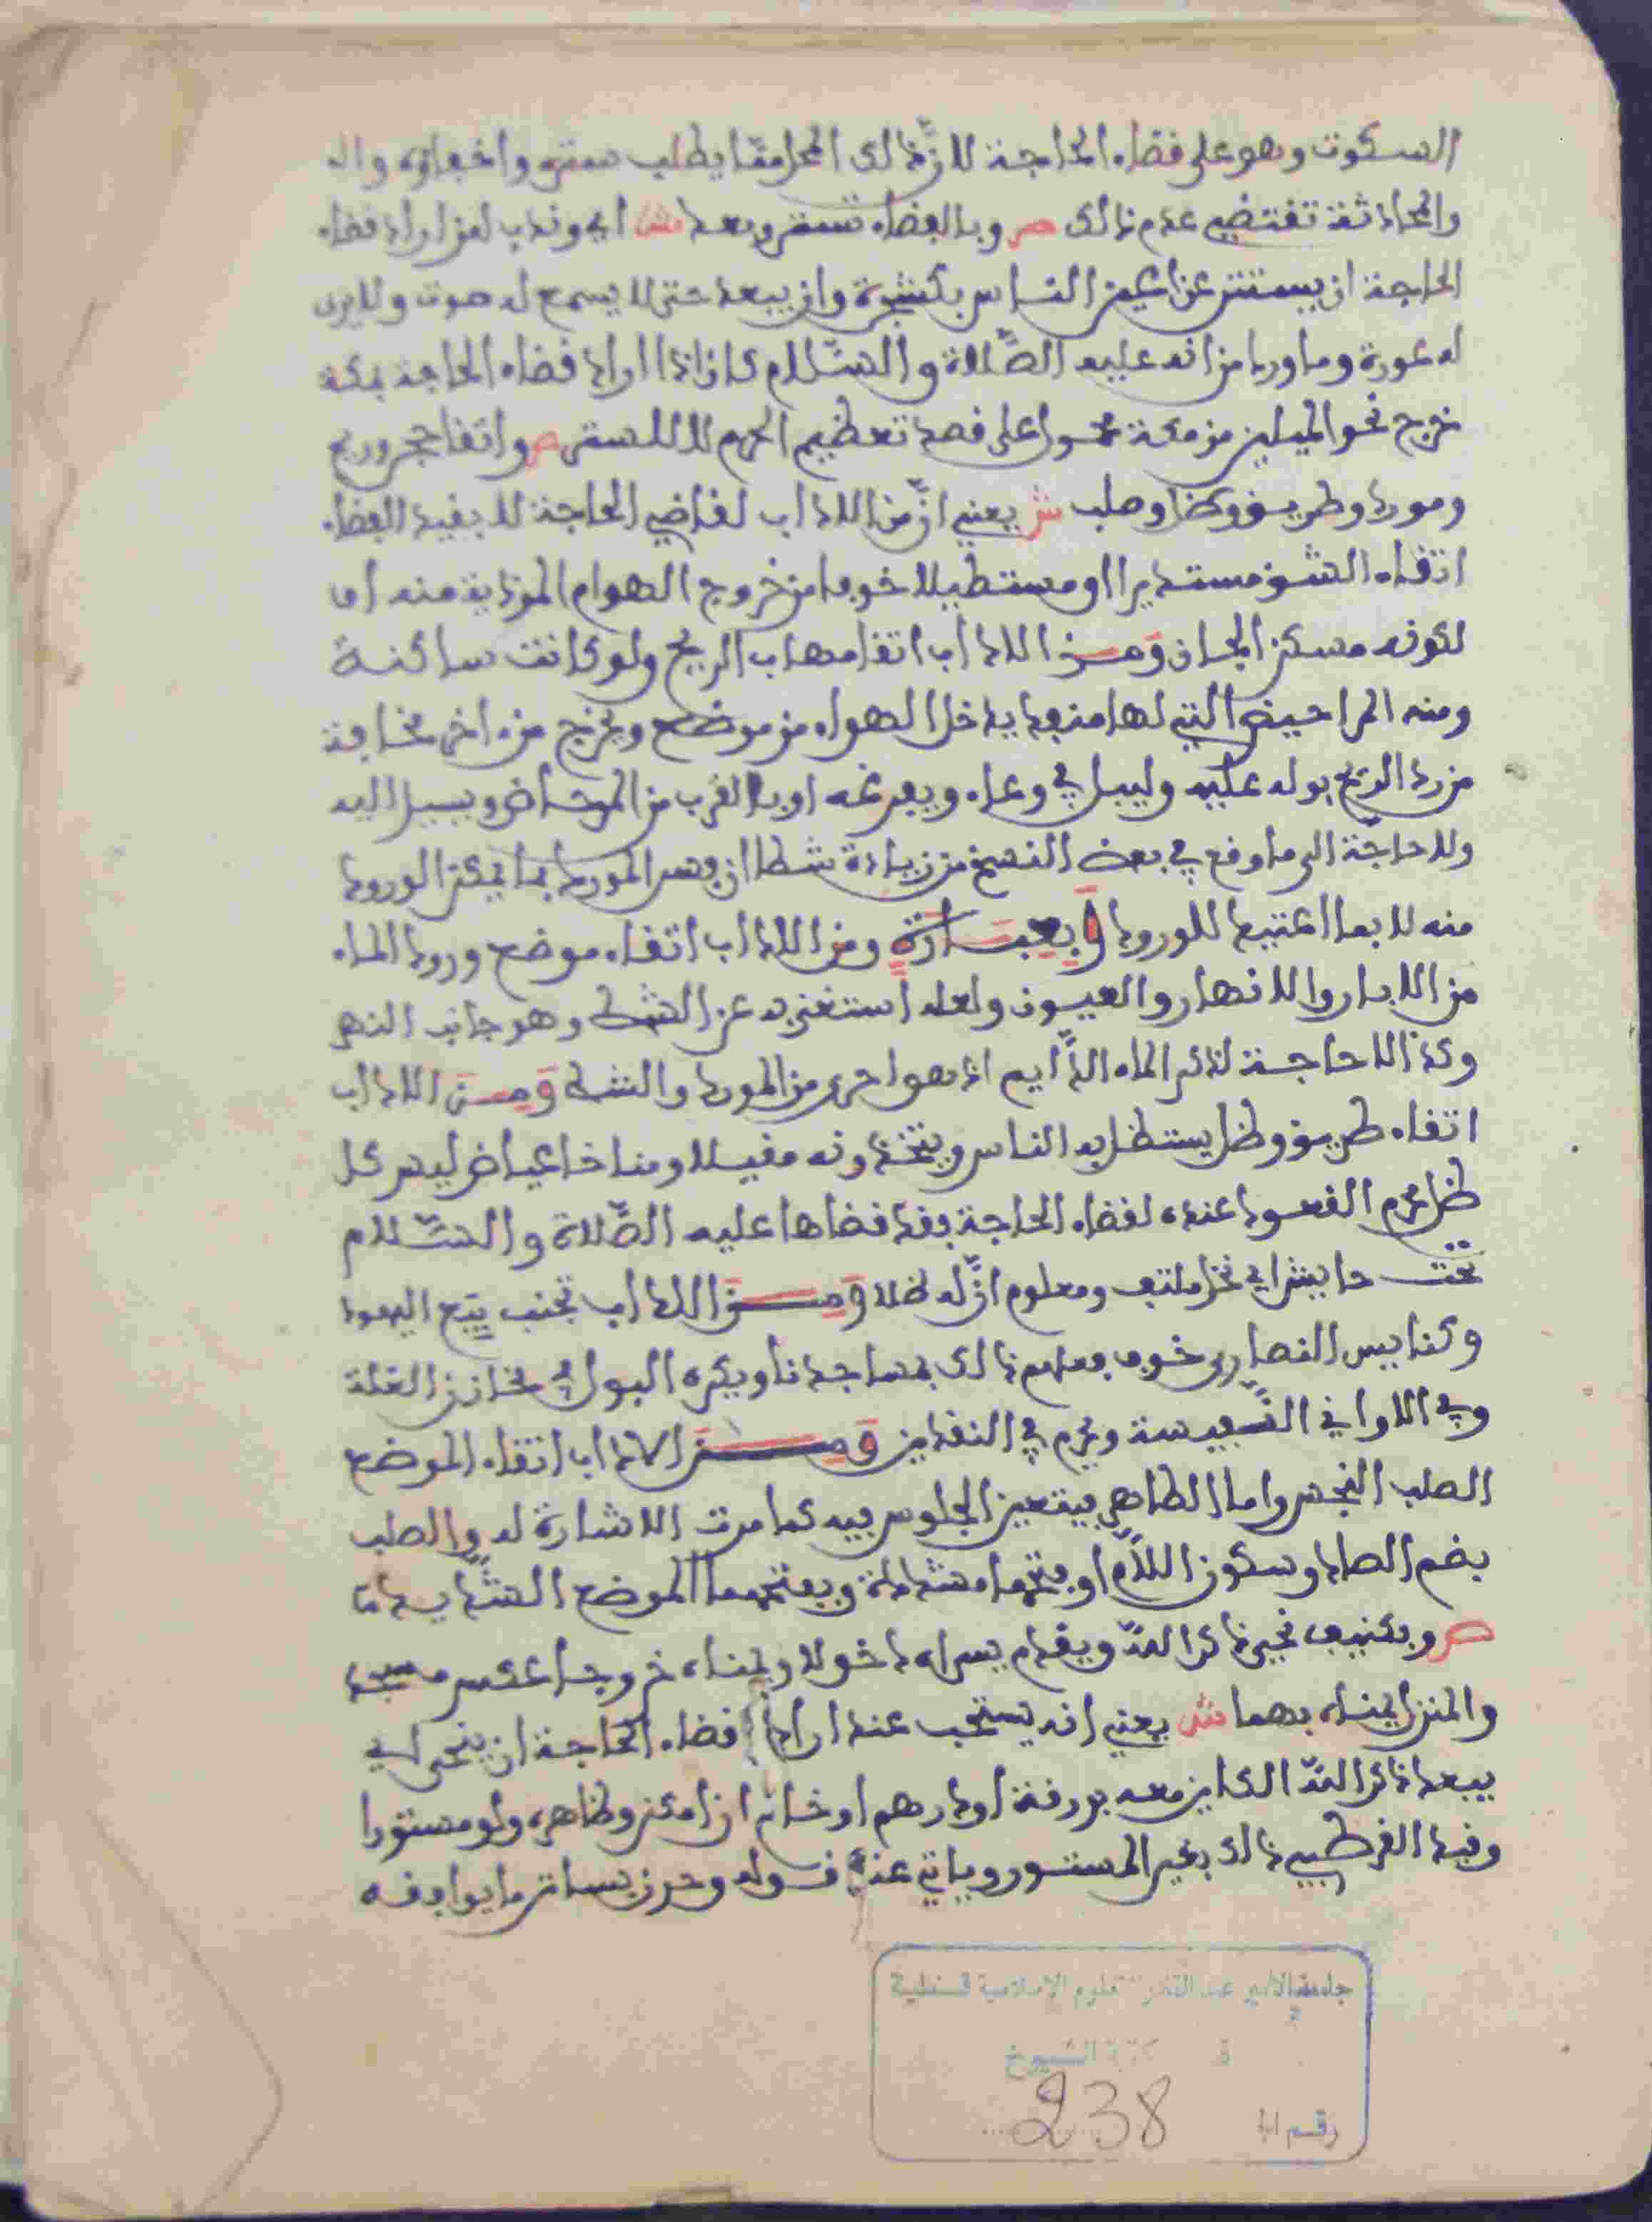 السكوت وهو على قضاء الحاجة لان ذلك المحل مما يطلب ستره واخفاؤه
والمحادثة تقتضي عدم ذلك ص وبالفضاء تستر وبعد ش اي وندب لمن اراد قضاء
الحاجة ان يستتر عن اعين الناس بكشجرة وان يبعد حتى لا يسمع له صوت ولا يرى
له عورة وما ورد من انه عليه الصلاة والسلام كان اذا اراد قضاء الحاجة بمكة
خرج نحو الميلين من مكة محمول على قصد تعظيم الحرم لا للستر ص واتقا جحر وريح
ومورد وطريق وظل وصلب ش يعني ان من الاداب لقاضي الحاجة لا بقيد الفضاء
اتقاء الشق مستديرا او مستطيلا خوفا من خروج الهوام المؤذية منه او
لكونه مسكن الجان ومن الاداب اتقا مهاب الريح ولو كانت ساكنة
ومنه المراحيض التي لها منفذ يدخل الهواء من موضع ويخرج من اخر مخافة
من رد الريح بوله عليه وليبل في وعاء ويفرغه او بالقرب من المرحاض ويسيل اليه
ولا حاجة الى ما وقع في بعض النسخ من زيادة شط ان فسر المورد بما يمكن الورود
منه لا بما اعتيد للورود وبعبارة ومن الاداب اتقاء موضع ورود الماء
من الابار والانهار والعيون ولعله استغنى به عن الشط وهو جانب النهر
وكذا لا حاجة لذكر الماء الدايم اذ هو احرى من المورد والشط ومن الاداب
اتقاء طريق وظل يستظل به الناس ويتخذونه مقيلا ومناخا عياض ليس كل
ظل يحرم القعود عنده لقضاء الحاجة فقد قضاها عليه الصلاة والسلام
تحت حايش اي نخل ملتف ومعلوم ان له ظلا ومن الاداب تجنب بيع اليهود
وكنايس النصارى خوف فعلهم ذلك بمساجدنا ويكره البول في مخازن الغلة
وفي الاواني النفيسة ويحرم في النقدين ومن الاداب اتقاء الموضع
الصلب النجس واما الطاهر فيتعين الجلوس فيه كما مرت الاشارة له والصلب
بضم الصاد وسكون اللام او بفتحها مشددة وبفتحهما الموضع الشديد
ص وبكنيف نحى ذكر الله ويقدم يسراه دخولا ويمناه خروجا عكس مسجد
والمنزل يمناه بهما ش يعني انه يستحب عند ارادة قضاء الحاجة ان ينحى اي
يبعد ذكر الله الكاين معه بورقة او درهم او خاتم ان امكن وظاهره ولو مستورا
وقيد القرطبي ذلك بغير المستور وياتي عند قوله وحرز بساتر ما يوافقه
جامعة الامير عبد القادر للعلوم الإسلامية قسنطينة
الشيوخ
رقم
238